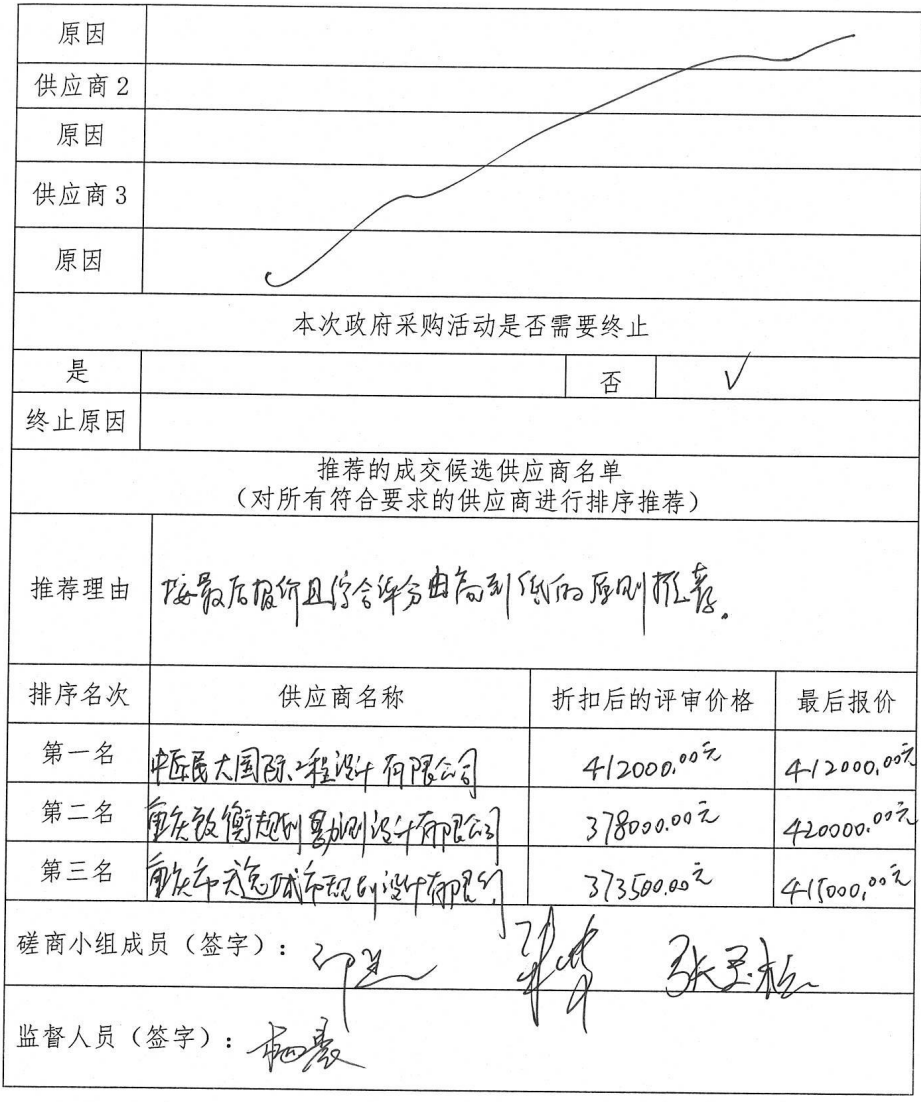 原因
供应商2
原因
供应商3
原因
本次政府采购活动是否需要终止
是 否 √
终止原因
推荐的成交候选供应商名单
（对所有符合要求的供应商进行排序推荐）
推荐理由 按最后报价且综合评分由高到低的原则推荐。
排序名次 供应商名称 折扣后的评审价格 最后报价
第一名 中匠民大国际工程设计有限公司 412000.00元 412000.00元
第二名 重庆致衡规划勘测设计有限公司 378000.00元 420000.00元
第三名 重庆市 城市规划设计有限公司 373500.00元 415000.00元
磋商小组成员（签字）：
监督人员（签字）：